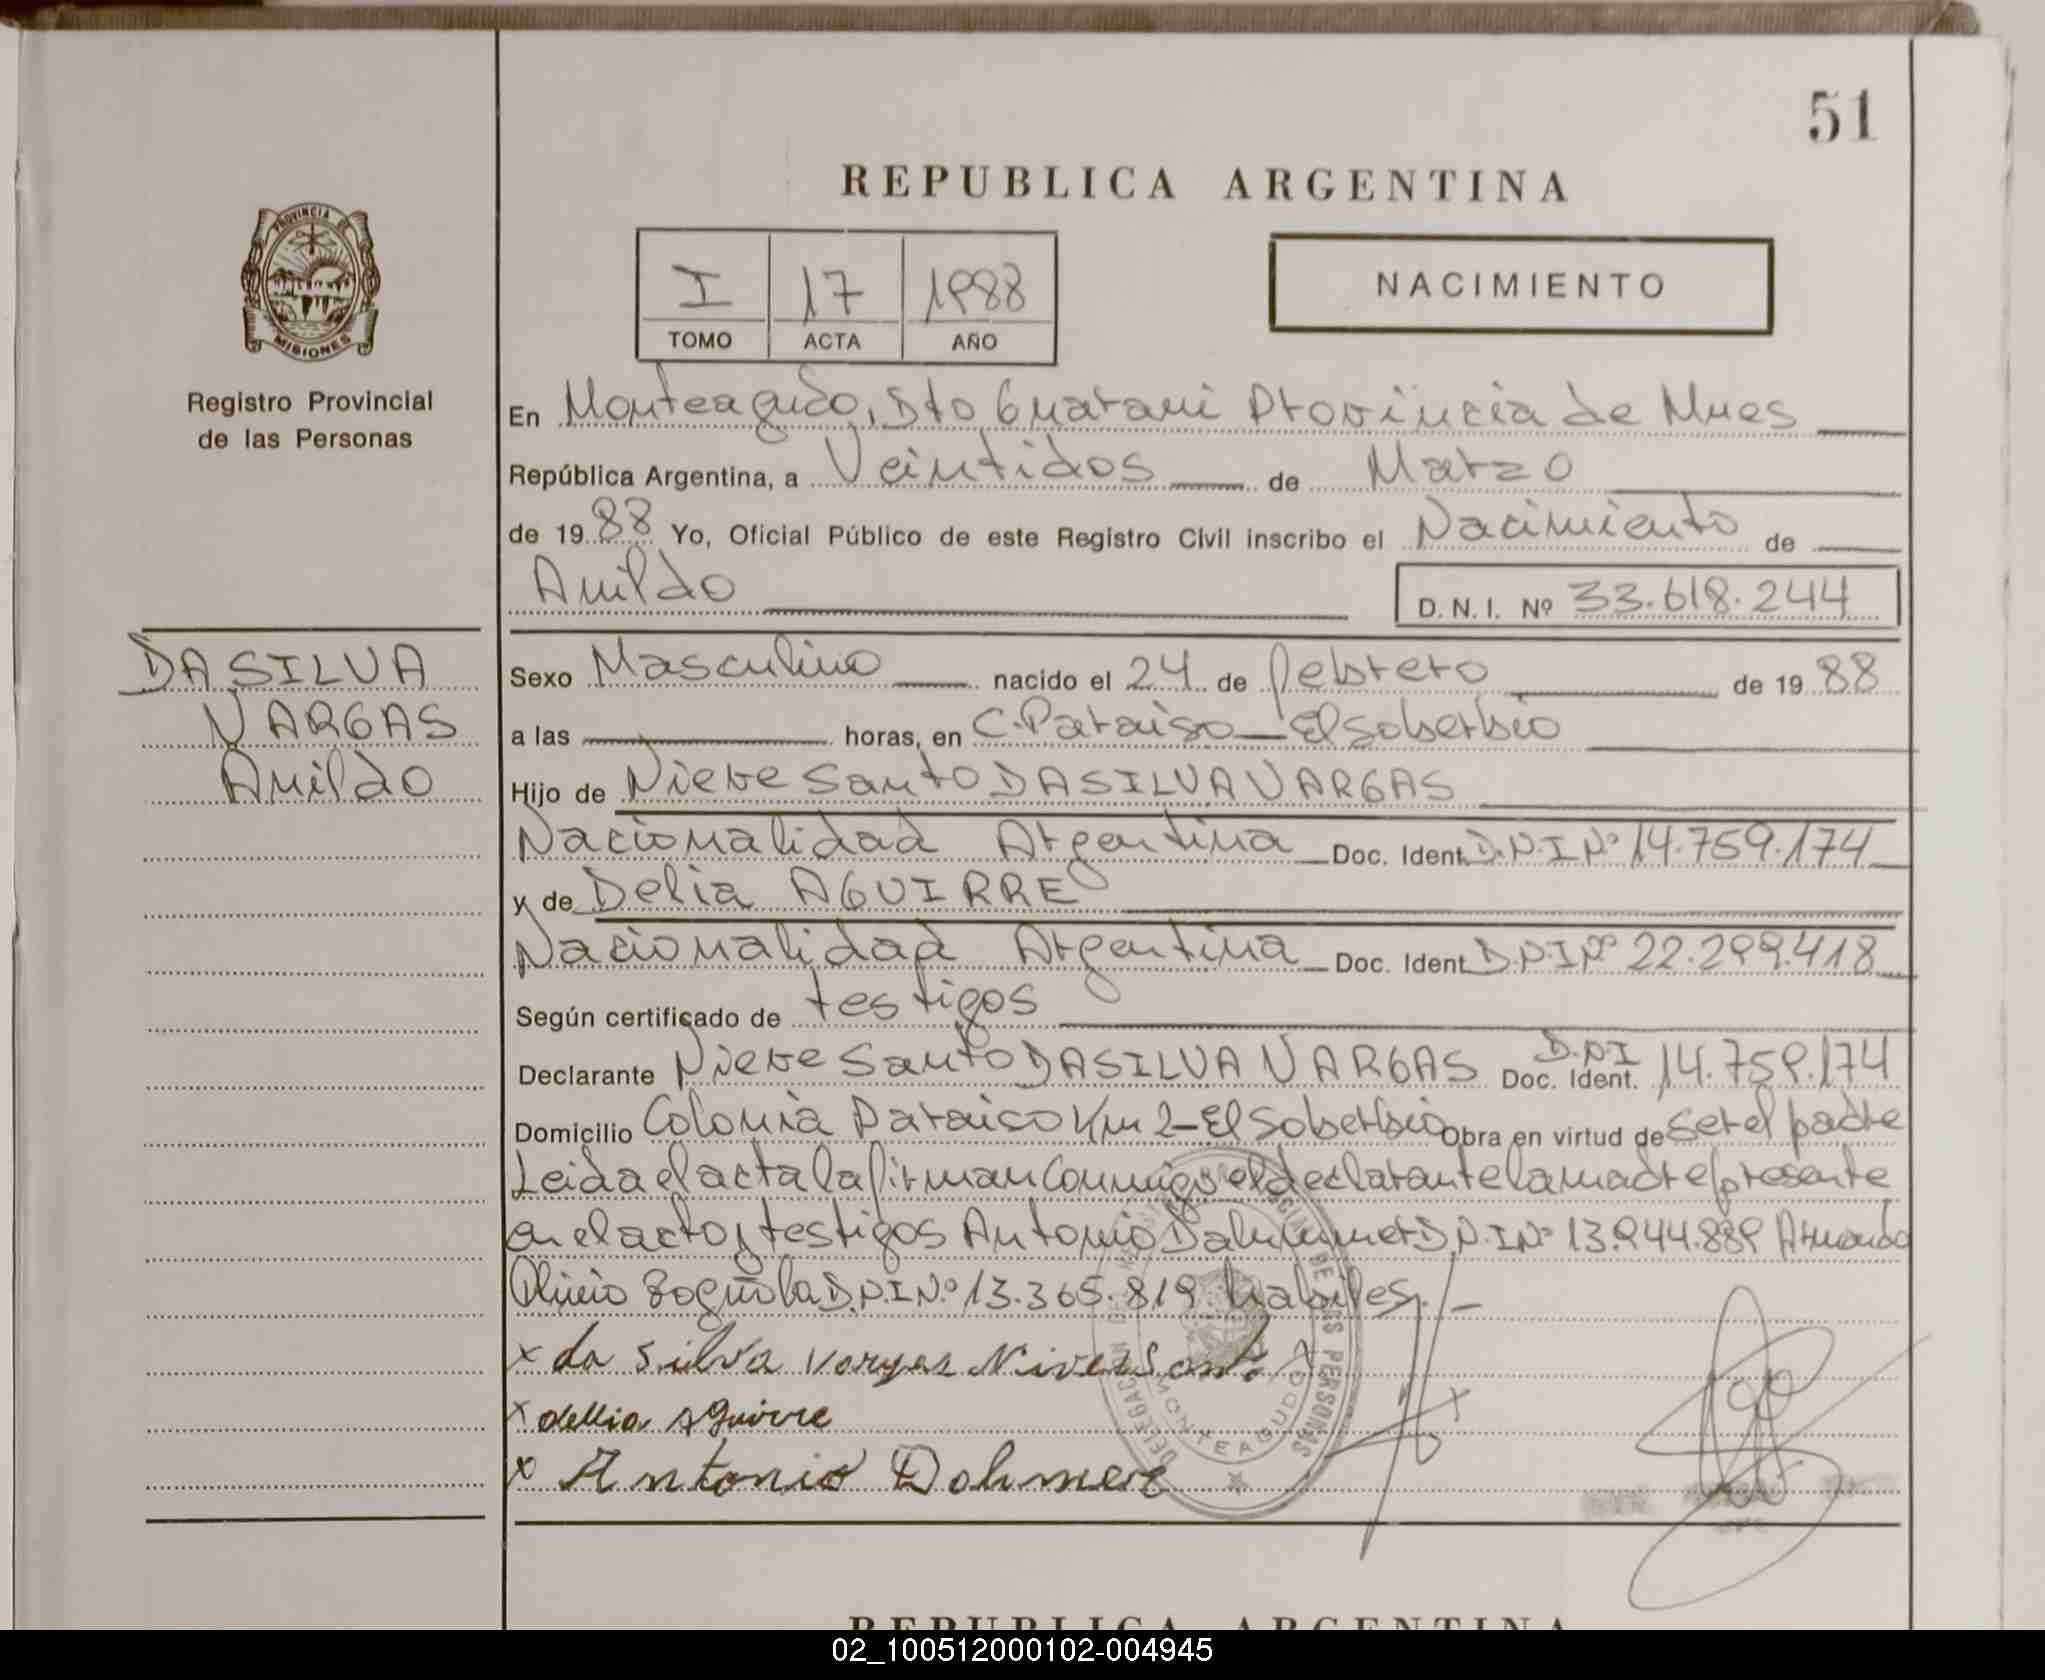 51
REPUBLICA ARGENTINA
PROVINCIA DE
MISIONES
Registro Provincial
de las Personas
I 17 1988
TOMO ACTA AÑO
NACIMIENTO
En Monteagudo, Dto Guarani Provincia de Mnes
República Argentina, a Veintidos de Marzo
de 1988 Yo, Oficial Público de este Registro Civil inscribo el Nacimiento de
Anildo D.N.I. Nº 33.618.244
DA SILVA
VARGAS
Anildo
Sexo Masculino nacido el 24 de febrero de 1988
a las horas, en C. Paraiso — El soberbio
Hijo de Nieve Santo DA SILVA VARGAS
Nacionalidad Argentina Doc. Ident. D.N.I Nº 14.759.174
y de Delia AGUIRRE
Nacionalidad Argentina Doc. Ident. D.N.I Nº 22.299.418
Según certificado de testigos
Declarante Nieve Santo DA SILVA VARGAS Doc. Ident. D.N.I 14.759.174
Domicilio Colonia Paraiso Km 2 - El Soberbio Obra en virtud de ser el padre
Leida el acta la firman conmigo el declarante la madre presente
en el acto y testigos Antonio D.N.I Nº 13.944.889 Armando
D.N.I Nº 13.365.819. habiles. —
x da Silva Vargas Nive Santo
x dellia Aguirre
x Antonio Dohmere
DELEGACION
MONTEAGUDO
DE LAS PERSONAS
REPUBLICA ARGENTINA
02_100512000102-004945